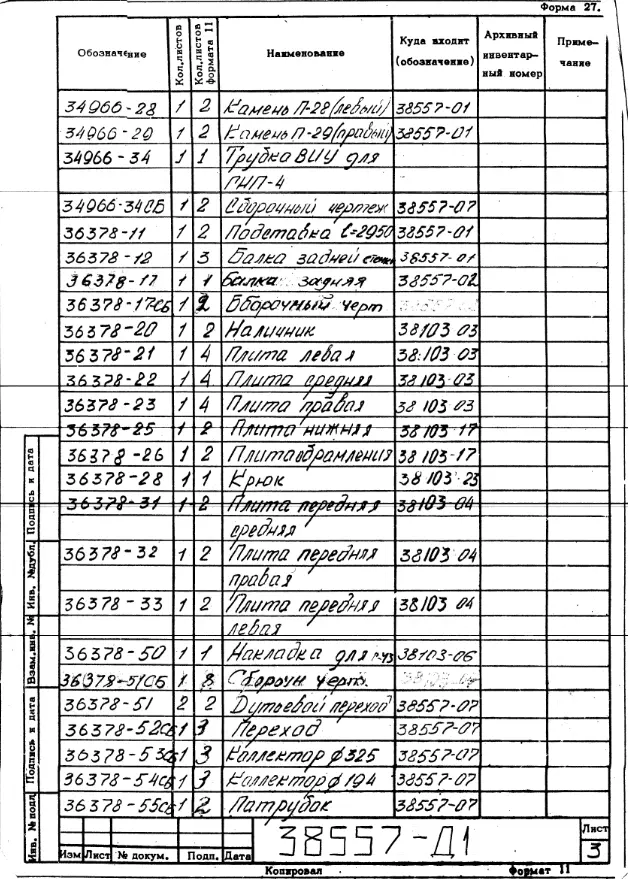 Форма 27.
Обозначение Кол.листов Кол.листов формата 11 Наименование Куда входит (обозначение) Архивный инвентарный номер Примечание
34966-28 1 2 Камень П-28(левый) 38557-01
34966-29 1 2 Камень П-29(правый) 38557-01
34966-34 1 1 Трубка ВИУ для
ГНП-4
34966-34СБ 1 2 Сборочный чертеж 38557-07
36378-11 1 2 Подставка l=2950 38557-01
36378-12 1 3 Балка задней стенки 38557-01
36378-17 1 1 Балка задняя 38557-02
36378-17СБ 1 2 Сборочный черт
36378-20 1 2 Наличник 38103 03
36378-21 1 4 Плита левая 38103-03
36378-22 1 4 Плита средняя 38103-03
36378-23 1 4 Плита правая 38103 03
36378-25 1 2 Плита нижняя 38103-17
36378-26 1 2 Плита обрамления 38103-17
36378-28 1 1 Крюк 38103-23
36378-31 1 2 Плита передняя 38103-04
средняя
36378-32 1 2 Плита передняя 38103 04
правая
36378-33 1 2 Плита передняя 38103 04
левая
36378-50 1 1 Накладка для 38103-06
36378-51СБ 1 8 Сборочн черт.
36378-51 2 2 Дутьевой переход 38557-07
36378-52сб 1 3 Переход 38557-07
36378-53сб 1 3 Коллектор ф325 38557-07
36378-54сб 1 3 Коллектор ф194 38557-07
36378-55сб 1 2 Патрубок 38557-07
Инв. № подл. Подпись и дата Взам.инв. № Инв. №дубл. Подпись и дата
38557-Д1
Лист
3
Изм Лист № докум. Подп. Дата
Копировал Формат 11